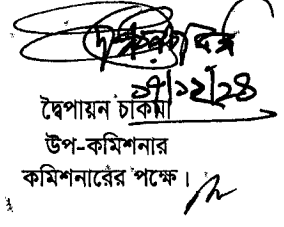 ১৭/১২/২৪
দ্বৈপায়ন চাকমা
উপ-কমিশনার
কমিশনারের পক্ষে।